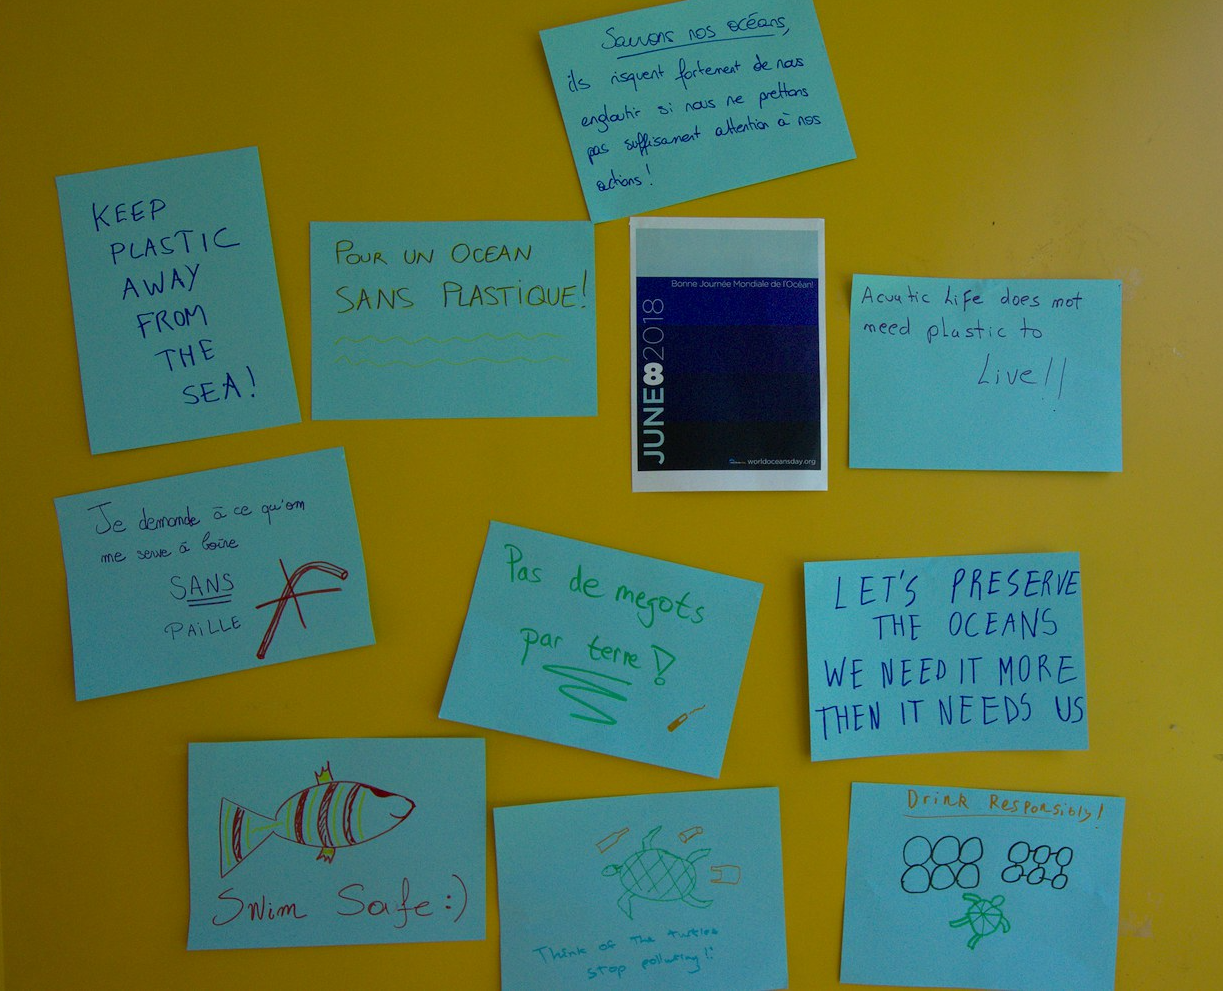 Sauvons nos océans,
ils risquent fortement de nous
engloutir si nous ne prettons
pas suffisament attention à nos
actions!
KEEP
PLASTIC
AWAY
FROM
THE
SEA!
POUR UN OCEAN
SANS PLASTIQUE!
Bonne Journée Mondiale de l'Océan!
JUNE82018
worldoceansday.org
Acuatic Life does not
need plastic to
Live!!
Je demande à ce qu'on
me serve à boire
SANS
PAILLE
Pas de megots
par terre!
LET'S PRESERVE
THE OCEANS
WE NEED IT MORE
THEN IT NEEDS US
Swim Safe :)
Think of the turtles
stop polluting!!
Drink Responsibly!